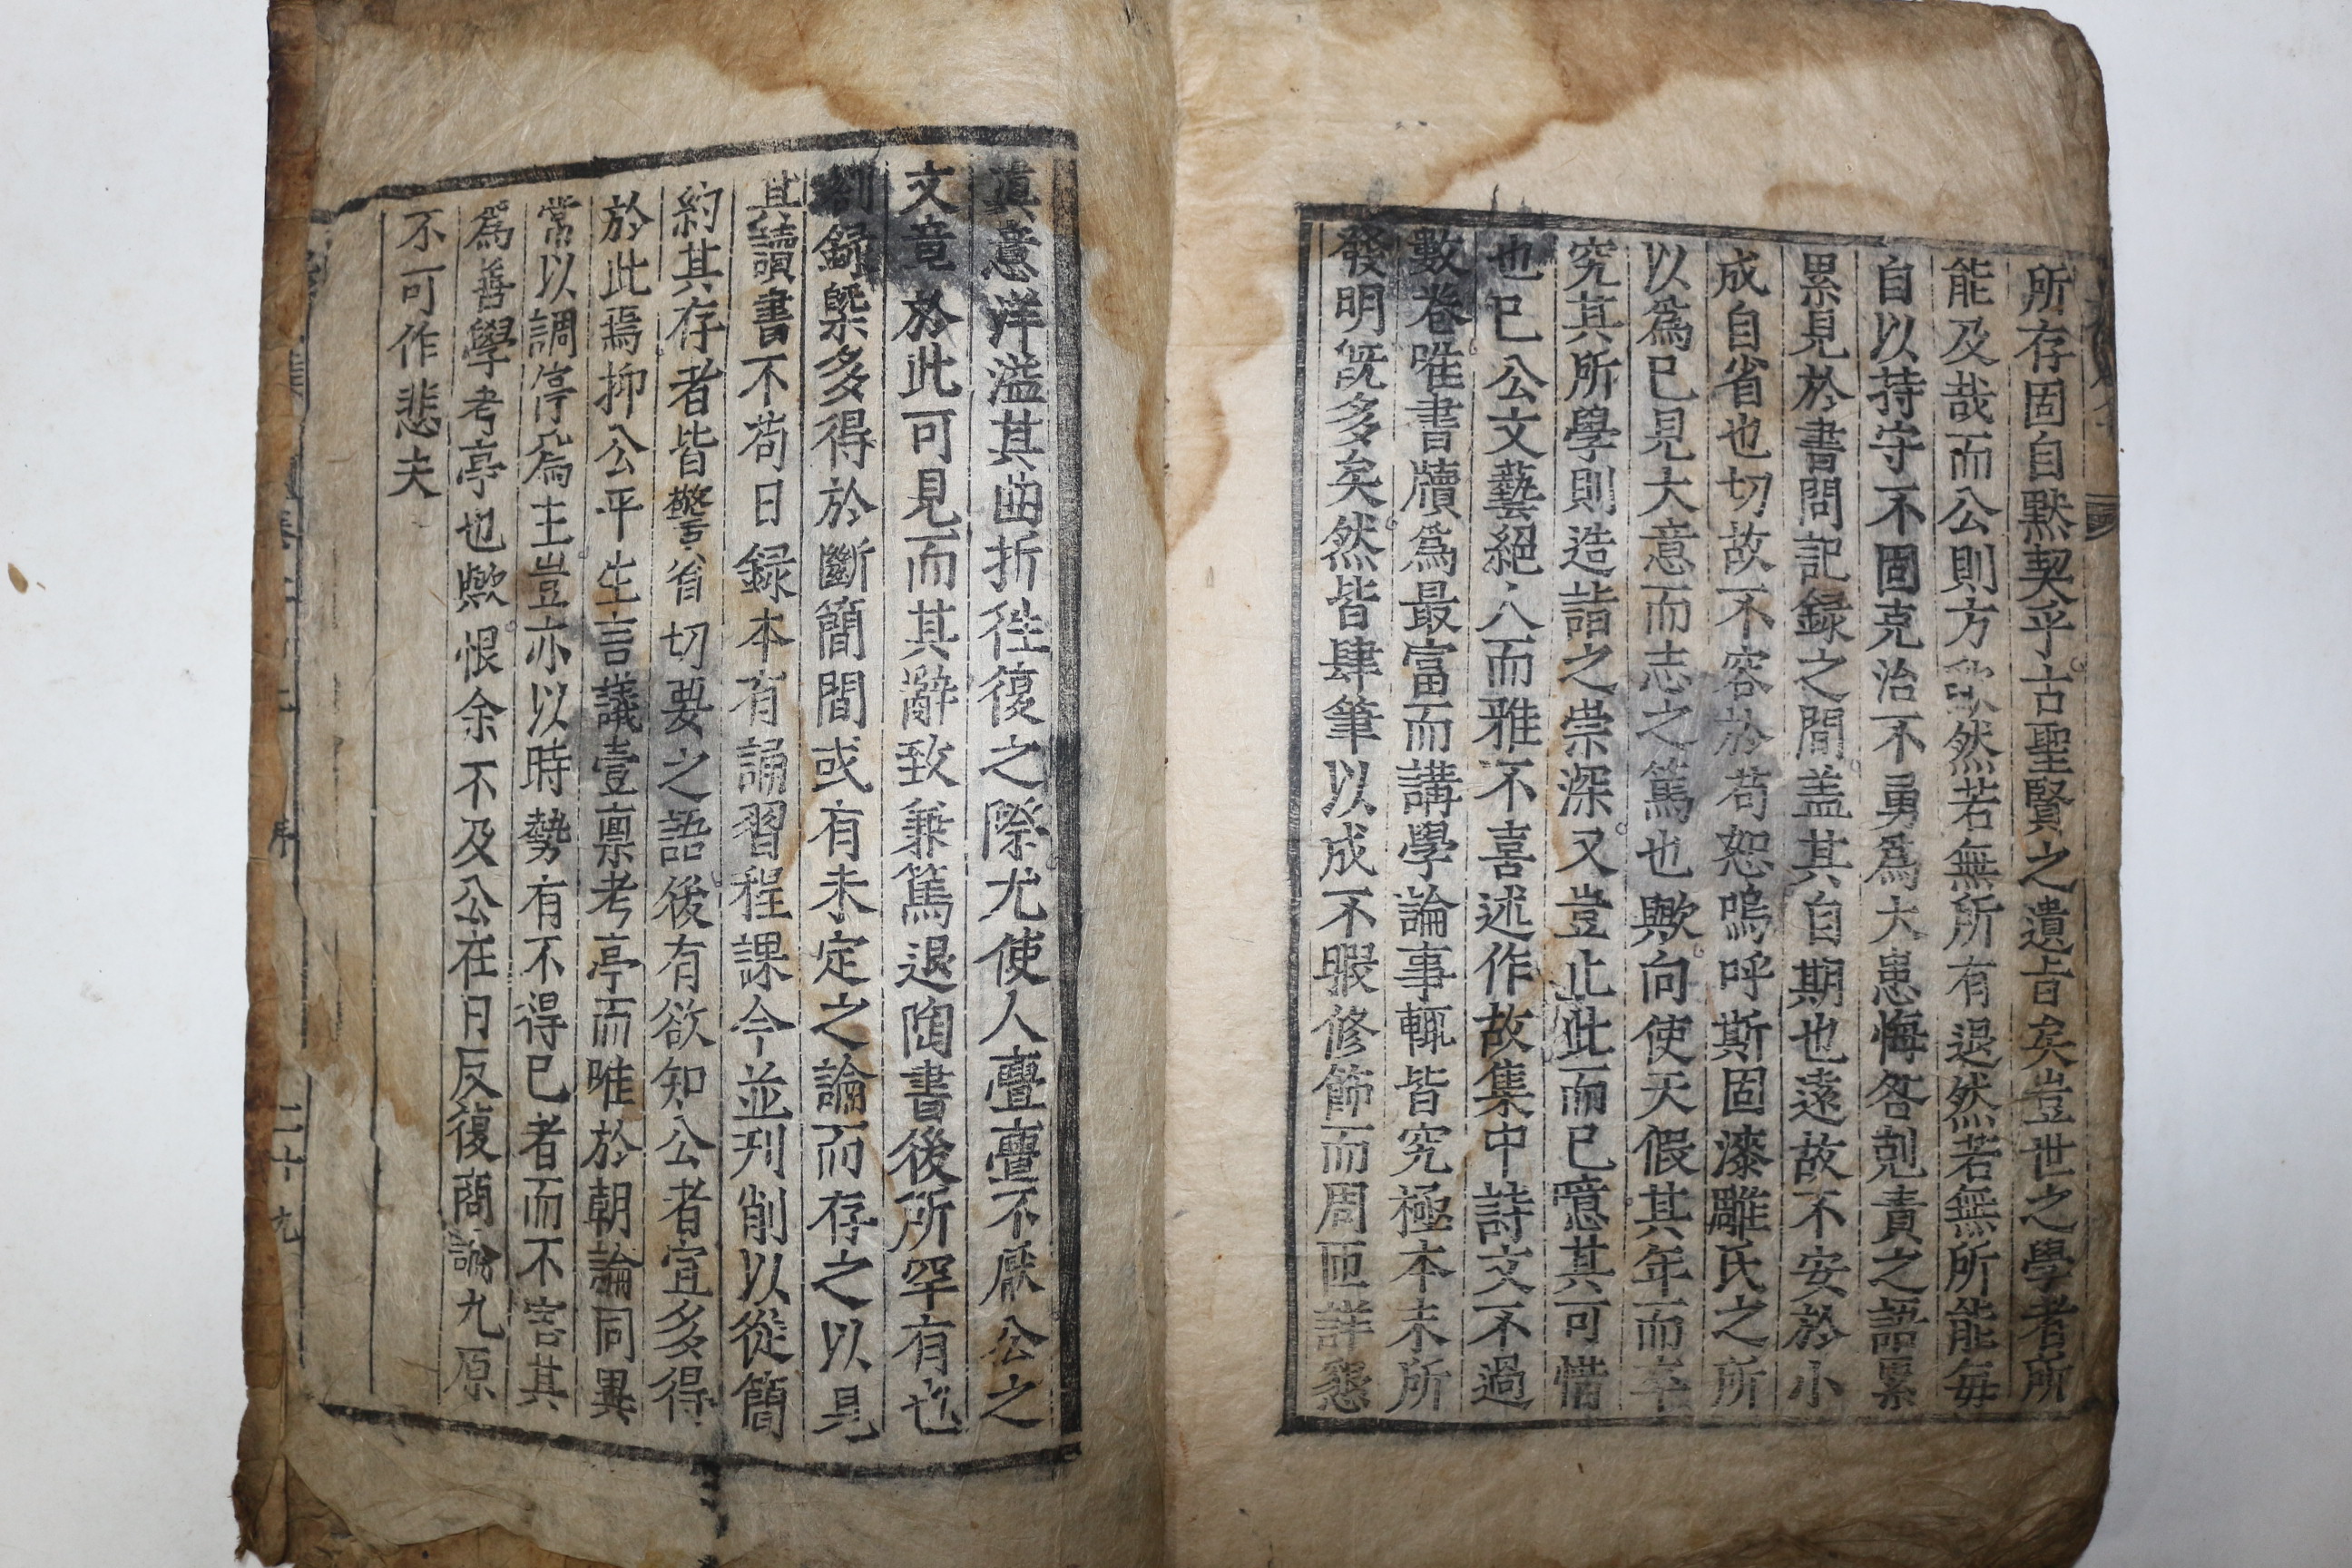 所存固自黙契乎古聖賢之遺旨矣豈世之學者所
能及哉而公則方欿然若無所有退然若無所能每
自以持守不固克治不勇爲大患悔咎剋責之語累
累見於書問記録之間盖其自期也遠故不安於小
成自省也切故不容於苟恕嗚呼斯固漆雕氏之所
以爲已見大意而志之篤也歟向使天假其年而卒
究其所學則造詣之崇深又豈止此而已噫其可惜
也已公文藝絕人而雅不喜述作故集中詩文不過
數卷唯書牘爲最富而講學論事輒皆究極本末所
發明旣多矣然皆肆筆以成不暇修飾而周匝詳懇
眞意洋溢其曲折徃復之際尤使人亹亹不厭公之
文章於此可見而其辭致兼篤退陶書後所罕有也
劄録槩多得於斷簡間或有未定之論而存之以見
其讀書不苟日録本有誦習程課今並刋削以從簡
約其存者皆警省切要之語後有欲知公者宜多得
於此焉抑公平生言議壹禀考亭而唯於朝論同異
常以調停爲主豈亦以時勢有不得已者而不害其
爲善學考亭也歟恨余不及公在日反復商論九原
不可作悲夫
二十九